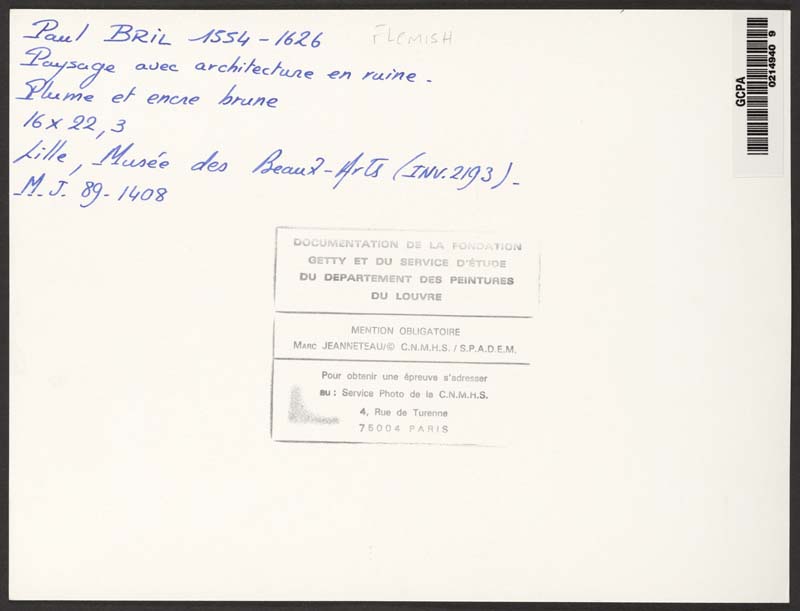 Paul BRIL 1554-1626 FLEMISH
Paysage avec architecture en ruine.
Plume et encre brune
16 x 22,3
Lille, Musée des Beaux-Arts (INV.2193)-
M.J. 89-1408
GCPA
0214940 9
DOCUMENTATION DE LA FONDATION
GETTY ET DU SERVICE D'ÉTUDE
DU DEPARTEMENT DES PEINTURES
DU LOUVRE
MENTION OBLIGATOIRE
MARC JEANNETEAU/© C.N.M.H.S. / S.P.A.D.E.M.
Pour obtenir une épreuve s'adresser
au : Service Photo de la C.N.M.H.S.
4, Rue de Turenne
75004 PARIS